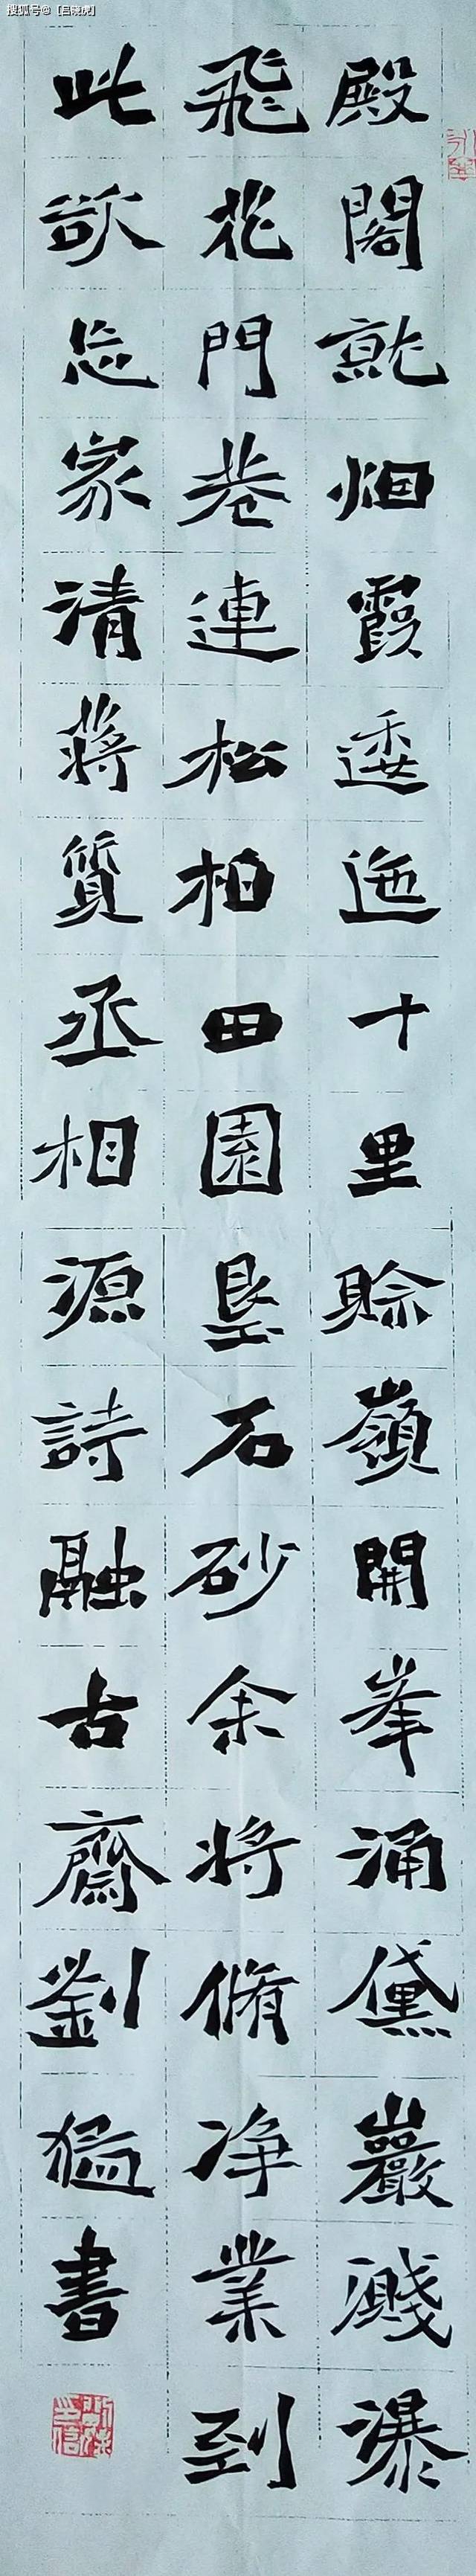 搜狐号@【吕晓虎】
殿閣就烟霞逶迤十里賒嶺開峯涌黛巖濺瀑
飛花門巷連松柏田園墾石砂余将脩净業到
此欲忘家清蔣質丞相源詩融古齋劉猛書